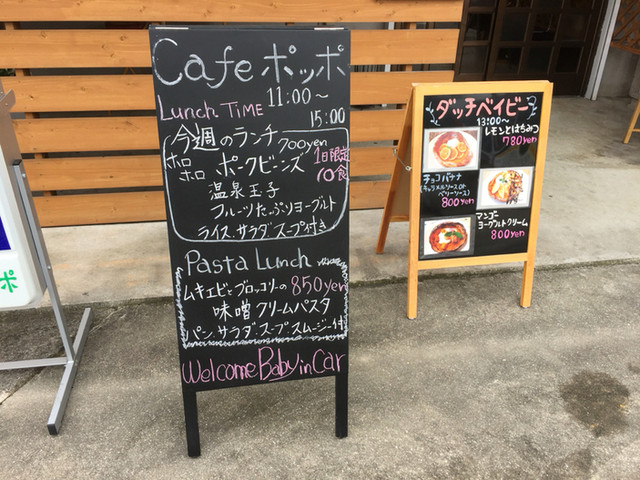 Cafe ポッポ
Lunch TIME 11:00～
15:00
今週のランチ 700yen
ホロホロ ポークビーンズ 1日限定10食
温泉玉子
フルーツたっぷりヨーグルト
ライス、サラダ、スープ付き
Pasta Lunch
ムキエビとブロッコリーの 850yen
味噌クリームパスタ
パン、サラダ、スープ、スムージー付
Welcome Baby in Car
ダッチベイビー
13:00～
レモンとはちみつ
780yen
チョコバナナ
(キャラメルソース or
ベリーソース)
800yen
マンゴー
ヨーグルトクリーム
800yen
ポ